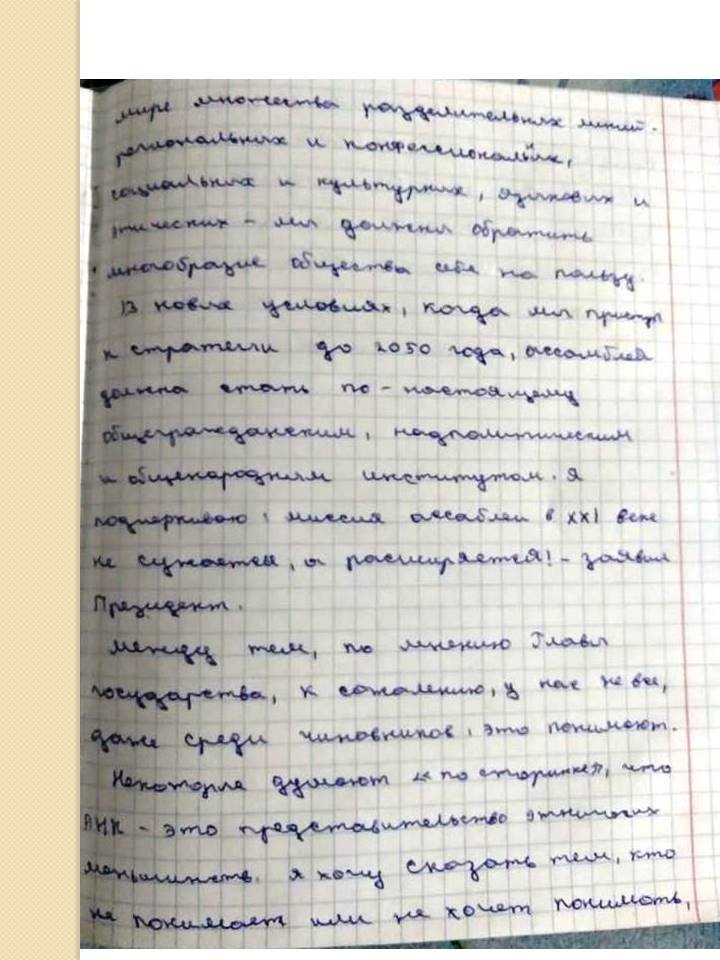 мире множества разделительных линий -
региональных и конфессиональных,
социальных и культурных, языковых и
этнических - мы должны обратить
многообразие общества себе на пользу.
В новых условиях, когда мы приступ
к стратегии до 2050 года, ассамблея
должна стать по-настоящему
общегражданским, надполитическим
и общенародным институтом. Я
подчеркиваю: миссия ассаблеи в XXI веке
не сужается, а расширяется! - заявил
Президент.
Между тем, по мнению Главы
государства, к сожалению, у нас не все,
даже среди чиновников, это понимают.
Некоторые думают «по старинке», что
АНК - это представительство этнических
меньшинств. Я хочу сказать тем, кто
не понимает или не хочет понимать,